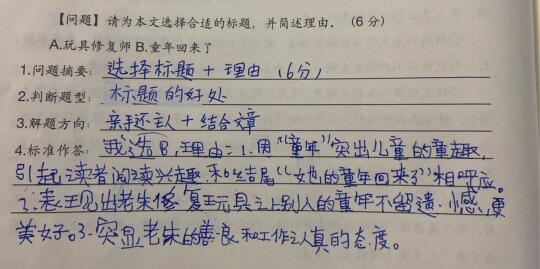 【问题】请为本文选择合适的标题，并简述理由。（6分）
A.玩具修复师 B.童年回来了
1.问题摘要：选择标题 + 理由（6分）
2.判断题型：标题的好处
3.解题方向：亲还主人 + 结合文章
4.标准作答：我选B,理由：1.用“童年”突出儿童的童趣，
引起读者阅读兴趣，和结尾“她的童年回来了”相呼应。
2.表现出老朱修复玩具之上别人的童年不留遗小感，更
美好。3.突显老朱的善良和工作认真的态度。